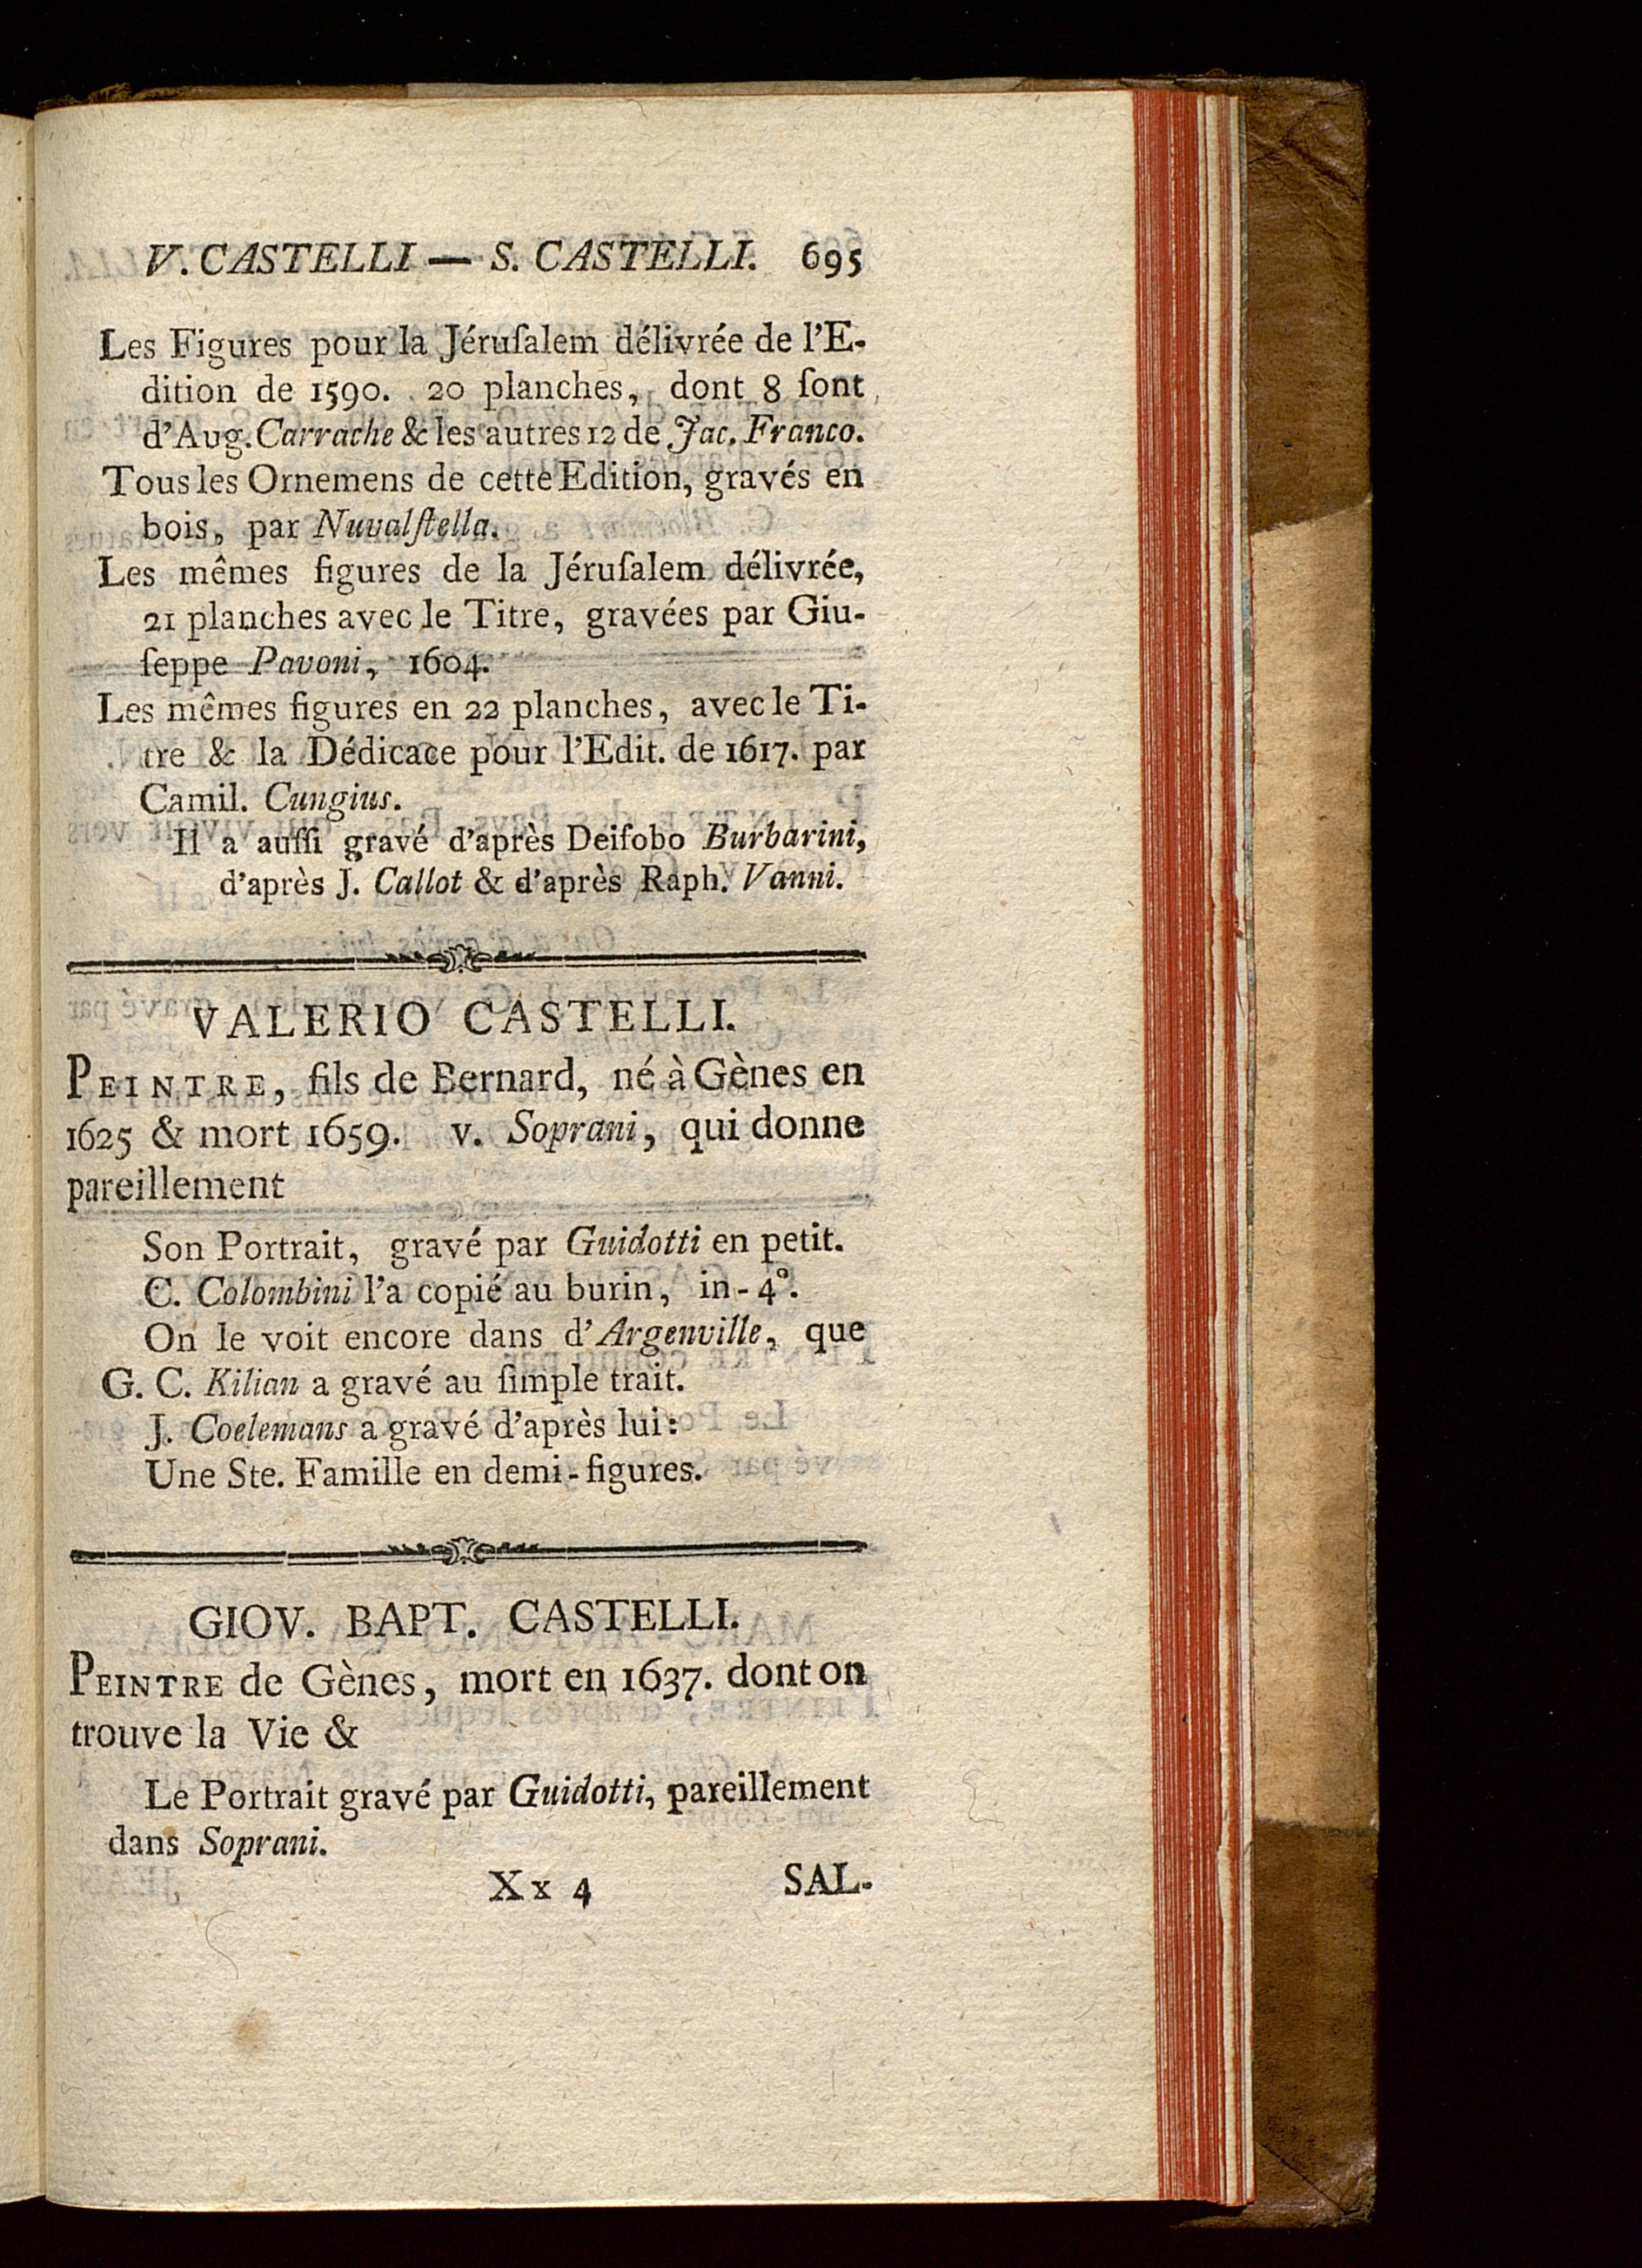 V. CASTELLI — S. CASTELLI. 695
Les Figures pour la Jéruſalem délivrée de l'E-
dition de 1590. 20 planches, dont 8 ſont
d'Aug. Carrache & les autres 12 de Jac. Franco.
Tous les Ornemens de cette Edition, gravés en
bois, par Nuvalſtella.
Les mêmes figures de la Jéruſalem délivrée,
21 planches avec le Titre, gravées par Giu-
ſeppe Pavoni, 1604.
Les mêmes figures en 22 planches, avec le Ti-
tre & la Dédicace pour l'Edit. de 1617. par
Camil. Cungius.
Il a auſſi gravé d'après Deifobo Burbarini,
d'après J. Callot & d'après Raph. Vanni.
VALERIO CASTELLI.
PEINTRE, fils de Bernard, né à Gènes en
1625 & mort 1659. v. Soprani, qui donne
pareillement
Son Portrait, gravé par Guidotti en petit.
C. Colombini l'a copié au burin, in-4°.
On le voit encore dans d'Argenville, que
G. C. Kilian a gravé au ſimple trait.
J. Coelemans a gravé d'après lui:
Une Ste. Famille en demi-figures.
GIOV. BAPT. CASTELLI.
PEINTRE de Gènes, mort en 1637. dont on
trouve la Vie &
Le Portrait gravé par Guidotti, pareillement
dans Soprani.
Xx 4 SAL-